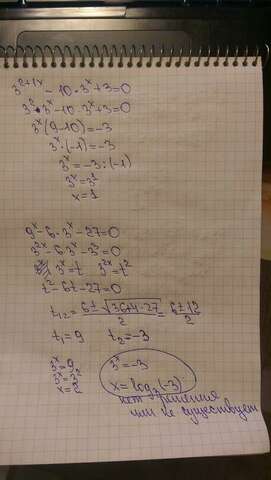 3^{2+1x} - 10 · 3^x + 3 = 0
3^2 · 3^x - 10 · 3^x + 3 = 0
3^x (9 - 10) = -3
3^x · (-1) = -3
3^x = -3 : (-1)
3^x = 3^1
x = 1
9^x - 6 · 3^x - 27 = 0
3^{2x} - 6 · 3^x - 3^3 = 0
3^x = t 3^{2x} = t^2
t^2 - 6t - 27 = 0
t_{1,2} = \frac{6 ± \sqrt{36 + 4 · 27}}{2} = \frac{6 ± 12}{2}
t_1 = 9 t_2 = -3
3^x = 9
3^x = 3^2
x = 2
3^x = -3
x = log_3 (-3)
нет решения
или не существует